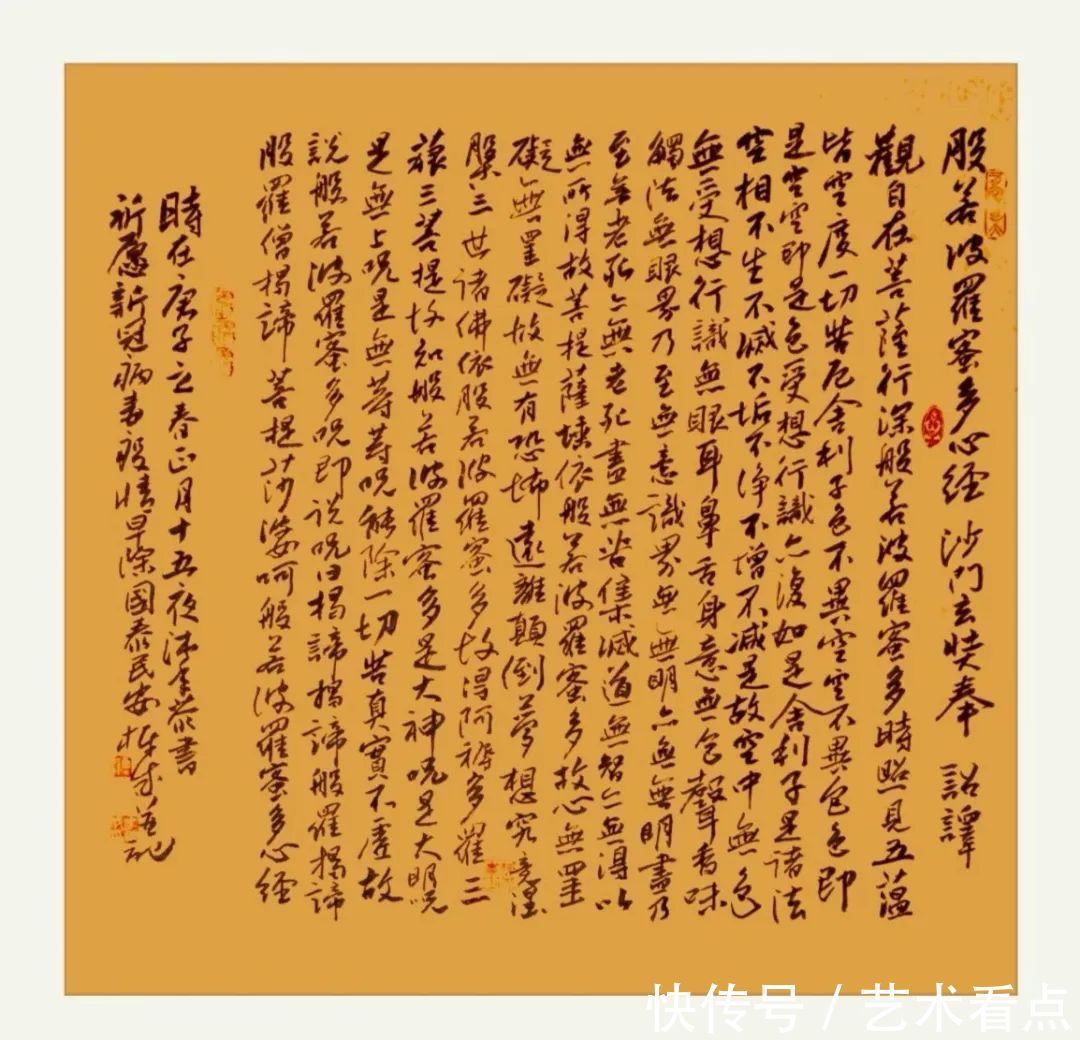 般若波羅蜜多心經 沙門玄奘奉 詔譯
觀自在菩薩行深般若波羅蜜多時照見五蘊
皆空度一切苦厄舍利子色不異空空不異色色即
是空空即是色受想行識亦復如是舍利子是諸法
空相不生不滅不垢不淨不增不减是故空中無色
無受想行識無眼耳鼻舌身意無色聲香味
觸法無眼界乃至無意識界無無明亦無無明盡乃
至無老死亦無老死盡無苦集滅道無智亦無得以
無所得故菩提薩埵依般若波羅蜜多故心無罣
礙無罣礙故無有恐怖遠離顛倒夢想究竟涅
槃三世諸佛依般若波羅蜜多故得阿耨多羅三
藐三菩提故知般若波羅蜜多是大神咒是大明咒
是無上咒是無等等咒能除一切苦真實不虛故
說般若波羅蜜多咒即说咒曰揭諦揭諦般羅揭諦
般羅僧揭諦 菩提莎婆呵般若波羅蜜多心經
時在庚子之春正月十五夜沐手恭書
祈愿新冠病毒疫情早除國泰民安
快传号 / 艺术看点